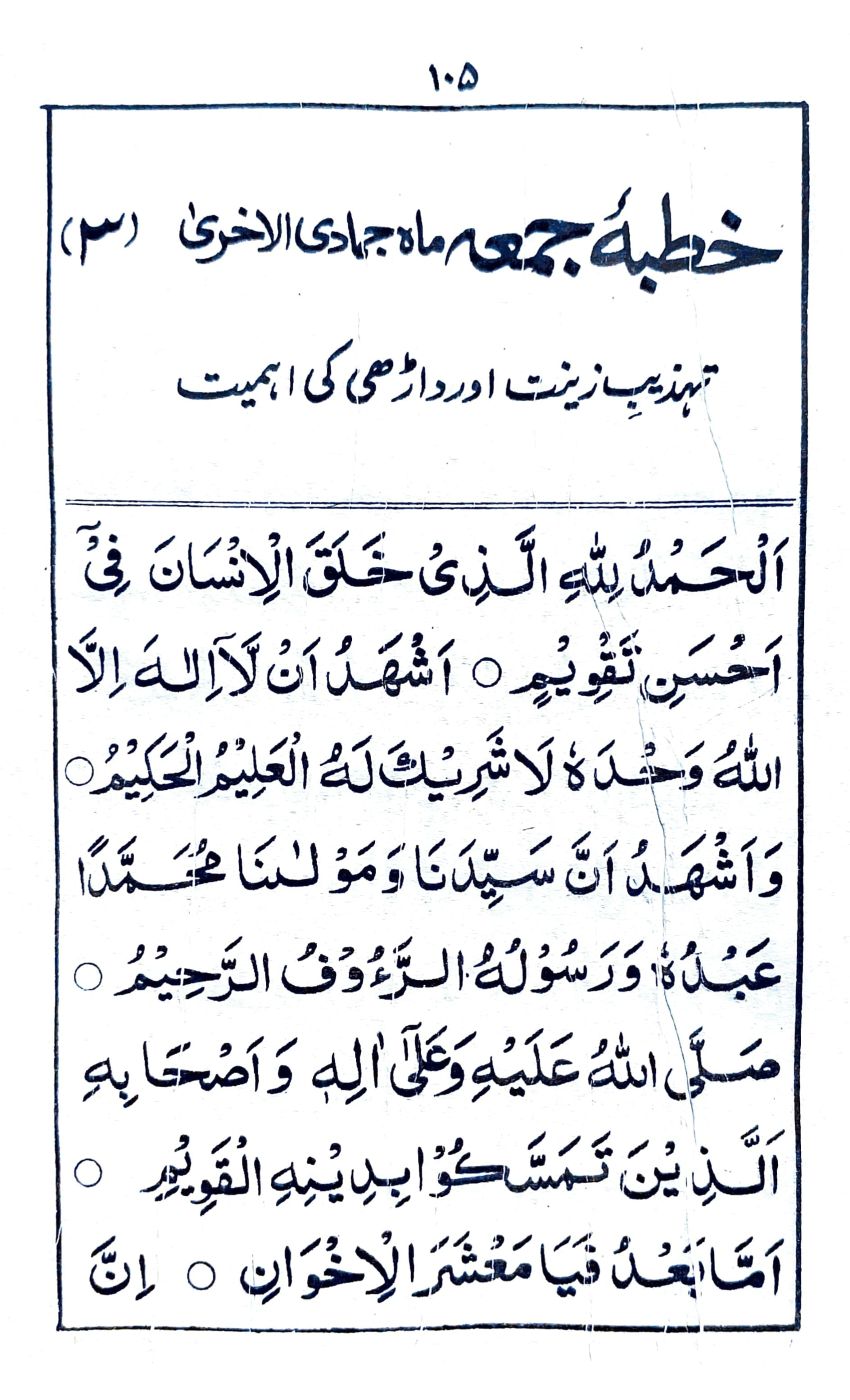 ۱۰۵
خطبۂ جمعہ ماہ جمادی الاخریٰ (۳)
تہذیبِ زینت اور داڑھی کی اہمیت
اَلْحَمْدُ لِلّٰهِ الَّذِیْ خَلَقَ الْاِنْسَانَ فِیْۤ
اَحْسَنِ تَقْوِیْمٍ ○ اَشْهَدُ اَنْ لَّاۤ اِلٰهَ اِلَّا
اللّٰهُ وَحْدَهٗ لَا شَرِیْكَ لَهُ الْعَلِیْمُ الْحَكِیْمُ ○
وَاَشْهَدُ اَنَّ سَیِّدَنَا وَمَوْلٰىنَا مُحَمَّدًا
عَبْدُهٗ وَرَسُوْلُهُ الرَّءُوْفُ الرَّحِیْمُ ○
صَلَّی اللّٰهُ عَلَیْهِ وَعَلٰۤی اٰلِهٖ وَاَصْحَابِهِ
الَّذِیْنَ تَمَسَّكُوْا بِدِیْنِهِ الْقَوِیْمِ ○
اَمَّا بَعْدُ فَیَا مَعْشَرَ الْاِخْوَانِ ○ اِنَّ